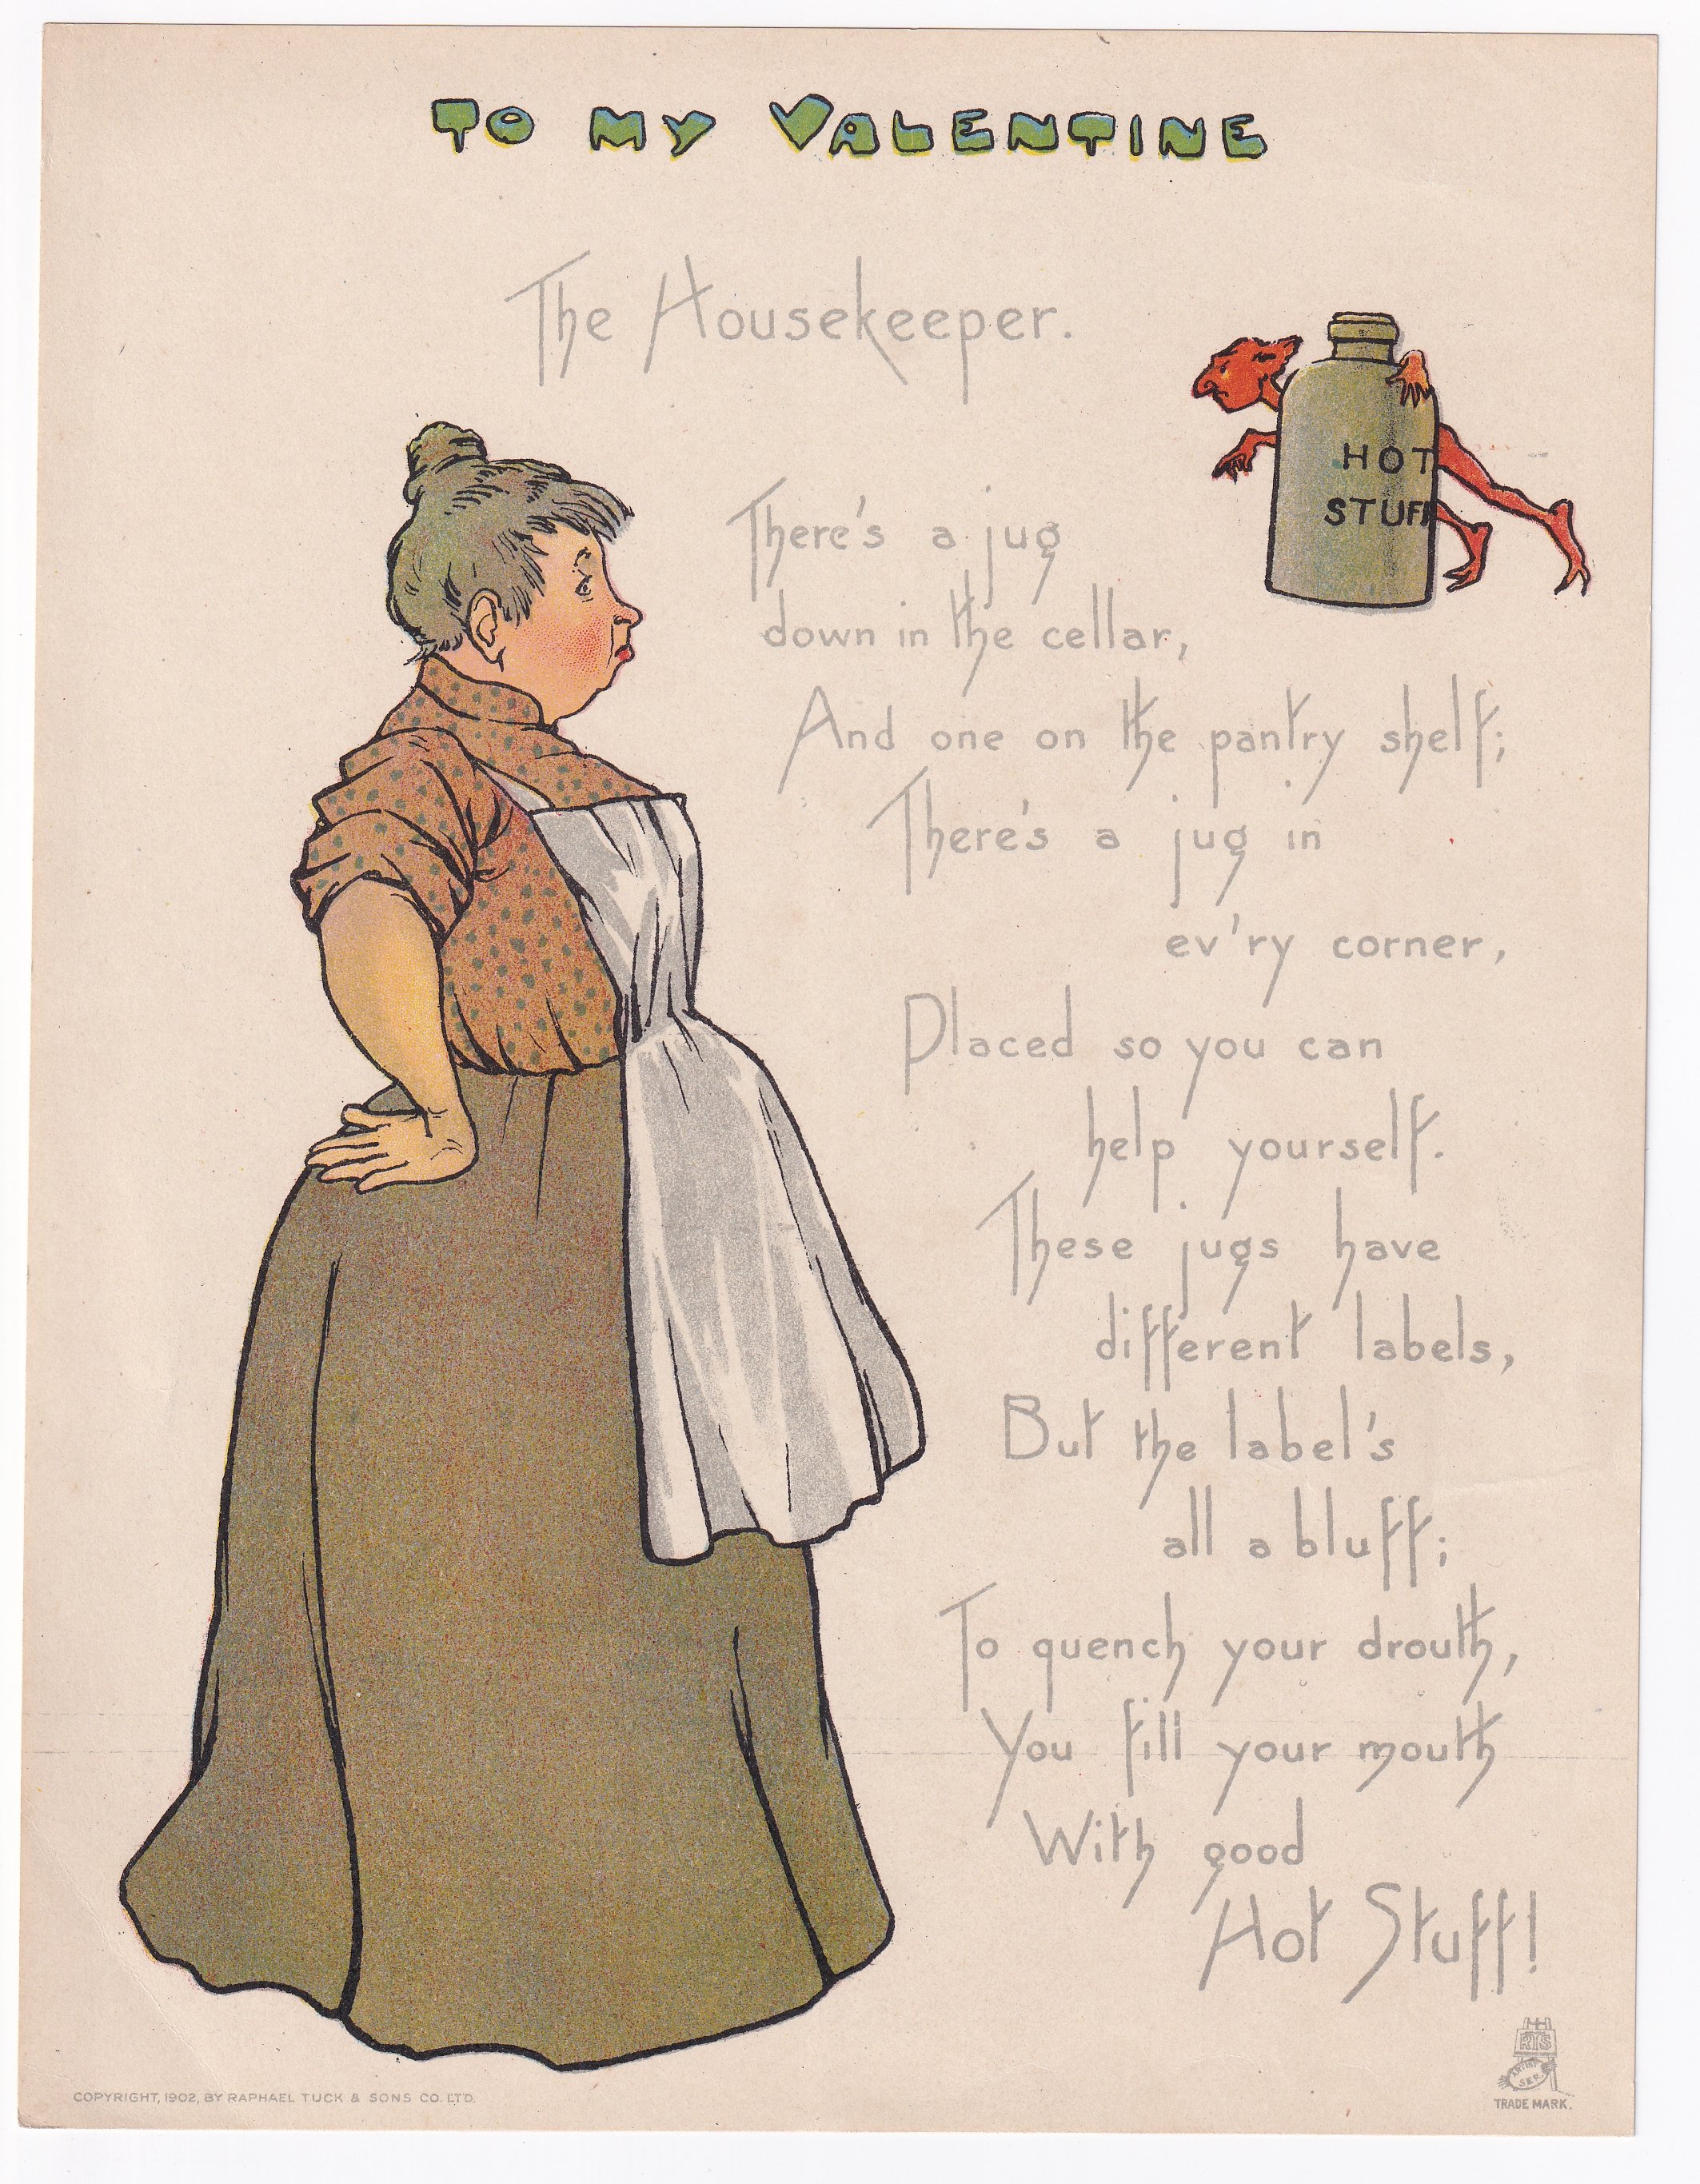 TO MY VALENTINE
The Housekeeper.
HOT
STUFF
There's a jug
down in the cellar,
And one on the pantry shelf;
There's a jug in
ev'ry corner,
Placed so you can
help yourself.
These jugs have
different labels,
But the label's
all a bluff;
To quench your drouth,
You fill your mouth
With good
Hot Stuff!
RTS
ARTIST
SER.
TRADE MARK.
COPYRIGHT, 1902, BY RAPHAEL TUCK & SONS CO. LTD.